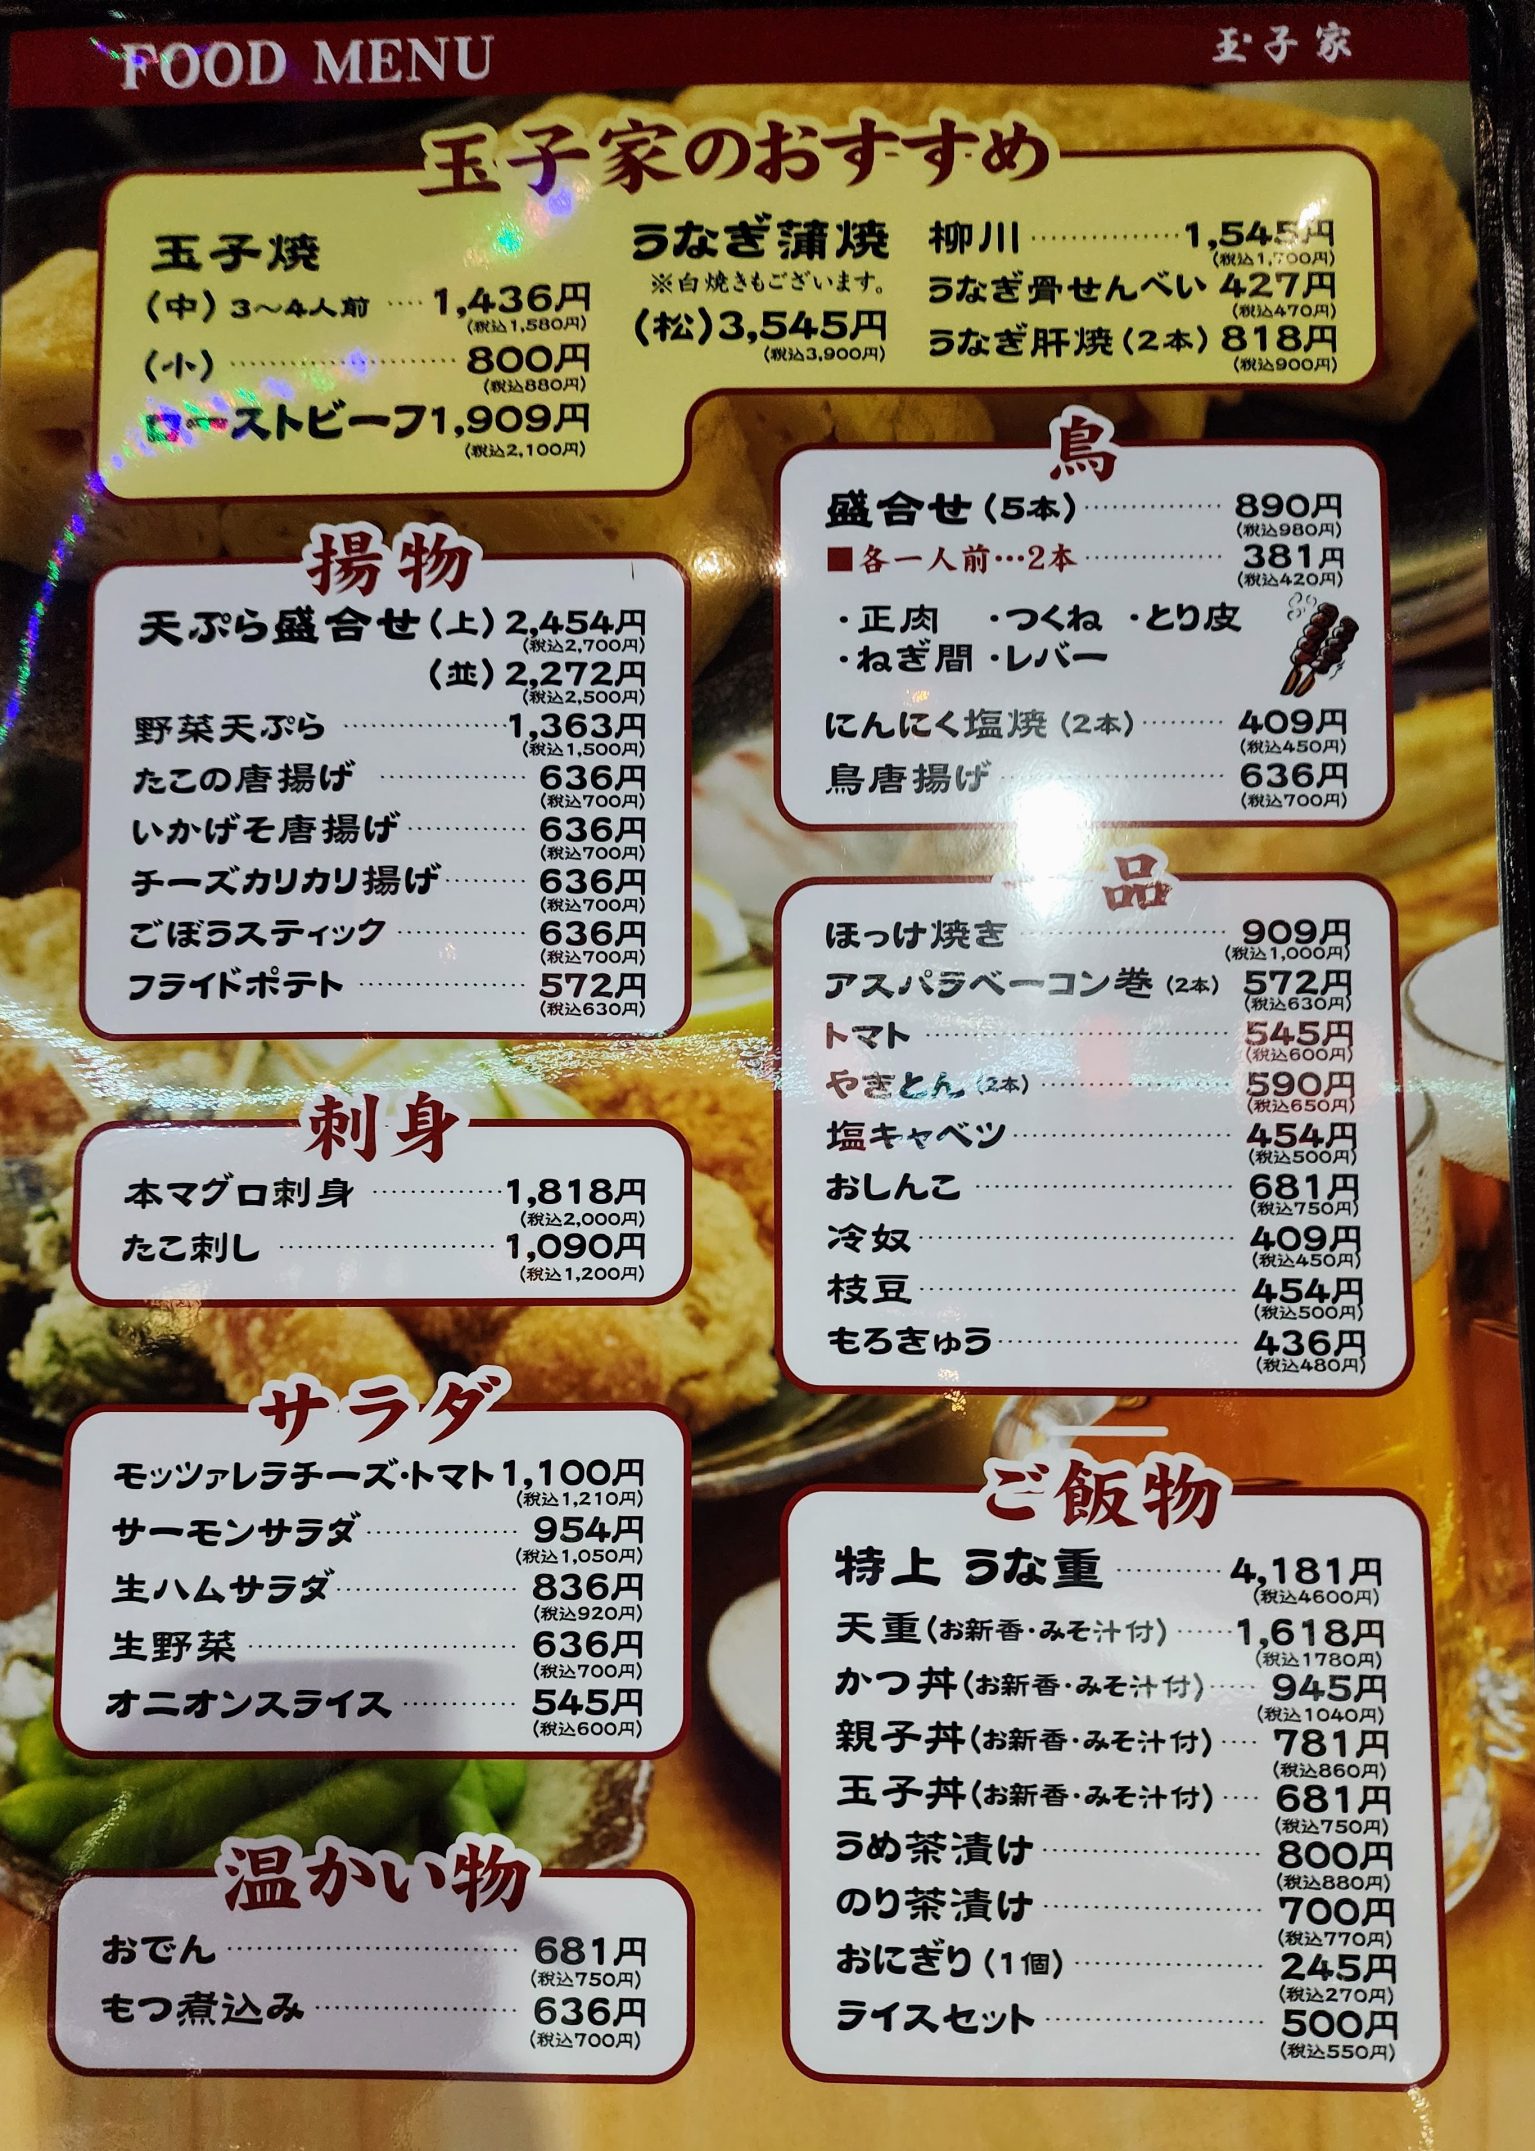 FOOD MENU
玉子家
玉子家のおすすめ
玉子焼
(中) 3〜4人前 ････ 1,436円
(税込1,580円)
(小) ････････ 800円
(税込880円)
ローストビーフ 1,909円
(税込2,100円)
うなぎ蒲焼
※白焼きもございます。
(松) 3,545円
(税込3,900円)
柳川 ････････ 1,545円
(税込1,700円)
うなぎ骨せんべい 427円
(税込470円)
うなぎ肝焼 (2本) 818円
(税込900円)
揚物
天ぷら盛合せ (上) 2,454円
(税込2,700円)
(並) 2,272円
(税込2,500円)
野菜天ぷら ････････ 1,363円
(税込1,500円)
たこの唐揚げ ････････ 636円
(税込700円)
いかげそ唐揚げ ････････ 636円
(税込700円)
チーズカリカリ揚げ ････････ 636円
(税込700円)
ごぼうスティック ････････ 636円
(税込700円)
フライドポテト ････････ 572円
(税込630円)
刺身
本マグロ刺身 ････････ 1,818円
(税込2,000円)
たこ刺し ････････ 1,090円
(税込1,200円)
サラダ
モッツァレラチーズ・トマト 1,100円
(税込1,210円)
サーモンサラダ ････････ 954円
(税込1,050円)
生ハムサラダ ････････ 836円
(税込920円)
生野菜 ････････ 636円
(税込700円)
オニオンスライス ････････ 545円
(税込600円)
温かい物
おでん ････････ 681円
(税込750円)
もつ煮込み ････････ 636円
(税込700円)
鳥
盛合せ (5本) ････････ 890円
(税込980円)
■各一人前…2本 ････････ 381円
(税込420円)
・正肉 ・つくね ・とり皮
・ねぎ間 ・レバー
にんにく塩焼 (2本) ････････ 409円
(税込450円)
鳥唐揚げ ････････ 636円
(税込700円)
一品
ほっけ焼き ････････ 909円
(税込1,000円)
アスパラベーコン巻 (2本) 572円
(税込630円)
トマト ････････ 545円
(税込600円)
やきとん (2本) ････････ 590円
(税込650円)
塩キャベツ ････････ 454円
(税込500円)
おしんこ ････････ 681円
(税込750円)
冷奴 ････････ 409円
(税込450円)
枝豆 ････････ 454円
(税込500円)
もろきゅう ････････ 436円
(税込480円)
ご飯物
特上 うな重 ････････ 4,181円
(税込4600円)
天重 (お新香・みそ汁付) ･･････ 1,618円
(税込1780円)
かつ丼 (お新香・みそ汁付) ･････ 945円
(税込1040円)
親子丼 (お新香・みそ汁付) ････ 781円
(税込860円)
玉子丼 (お新香・みそ汁付) ････ 681円
(税込750円)
うめ茶漬け ････････ 800円
(税込880円)
のり茶漬け ････････ 700円
(税込770円)
おにぎり (1個) ････････ 245円
(税込270円)
ライスセット ････････ 500円
(税込550円)